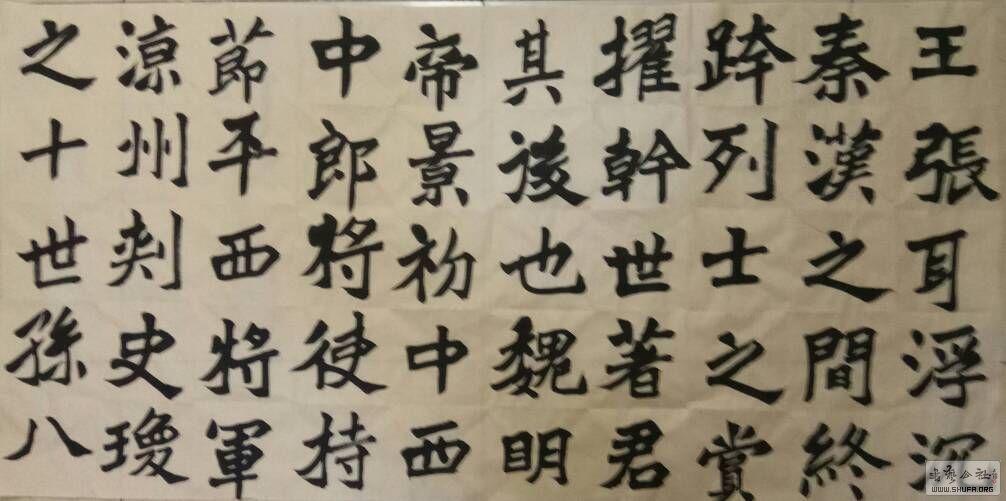 王張耳浮沉
秦漢之間終
跨列士之賞
擢幹世著君
其後也魏眀
帝景初中西
中郎將使持
莭平西將軍
涼州刾史瓊
之十世孫八
WWW.SHUFA.ORG